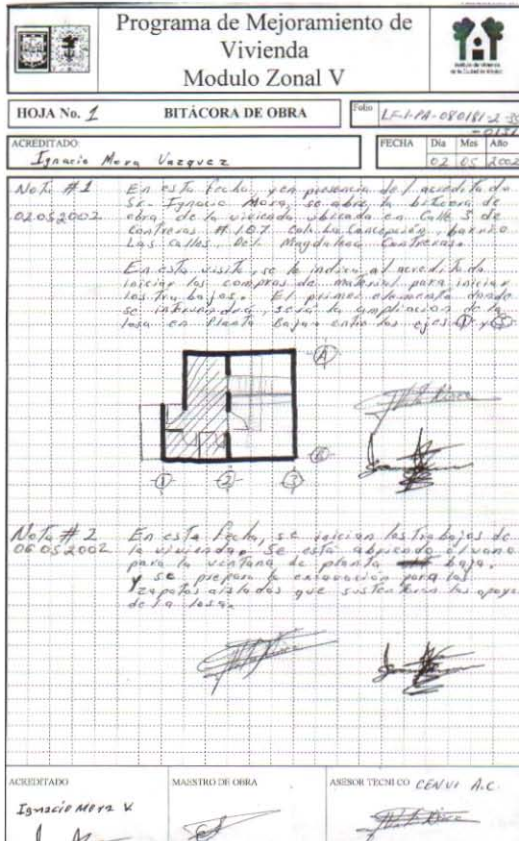 Programa de Mejoramiento de
Vivienda
Modulo Zonal V
HOJA No. 1 BITÁCORA DE OBRA Folio LF-1-PA-080181-2
ACREDITADO: FECHA Día Mes Año
Ignacio Mora Vazquez 02 05 2002
Nota #1 En esta fecha, y en presencia del acreditado
02052002 Sr. Ignacio Mora, se abre la bitácora de
obra, de la vivienda ubicada en Calle 3 de
Contreras # 107 Col. La Concepción, barrio
Las Calles, Del. Magdalena Contreras.
En esta visita, se le indica al acreditado
iniciar las compras de material para iniciar
los trabajos. El primer elemento donde
se intervendrá, será la ampliación de la
losa en Planta Baja entre los ejes 1 y
A
1 2 3
Nota #2 En esta fecha, se inician los trabajos de
06052002 la vivienda. Se está abriendo el vano
para la ventana de planta baja.
y se prepara la excavación para las
zapatas aisladas que sustentarán los apoyos
de la losa.
ACREDITADO MAESTRO DE OBRA ASESOR TECNICO CENVI A.C.
Ignacio Mora V